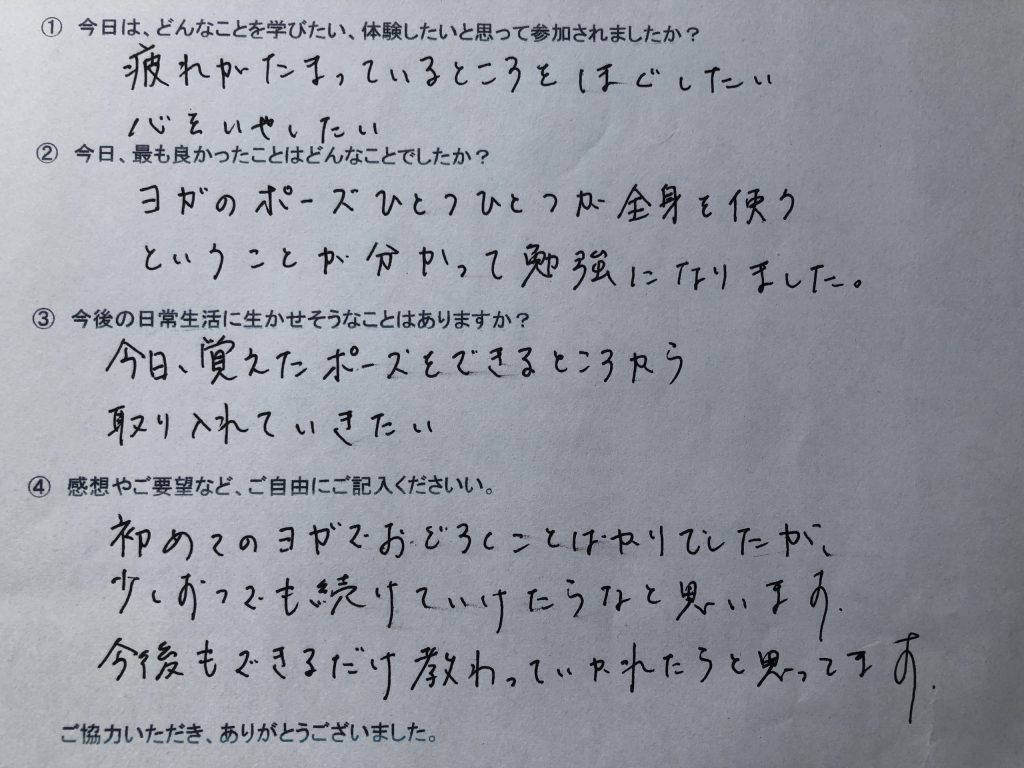 ① 今日は、どんなことを学びたい、体験したいと思って参加されましたか？
疲れがたまっているところをほぐしたい
心をいやしたい
② 今日、最も良かったことはどんなことでしたか？
ヨガのポーズひとつひとつが全身を使う
ということが分かって勉強になりました。
③ 今後の日常生活に生かせそうなことはありますか？
今日、覚えたポーズをできるところから
取り入れていきたい
④ 感想やご要望など、ご自由にご記入くださいい。
初めてのヨガでおどろくことばかりでしたが、
少しずつでも続けていけたらなと思います.
今後もできるだけ教わっていかれたらと思ってます.
ご協力いただき、ありがとうございました。